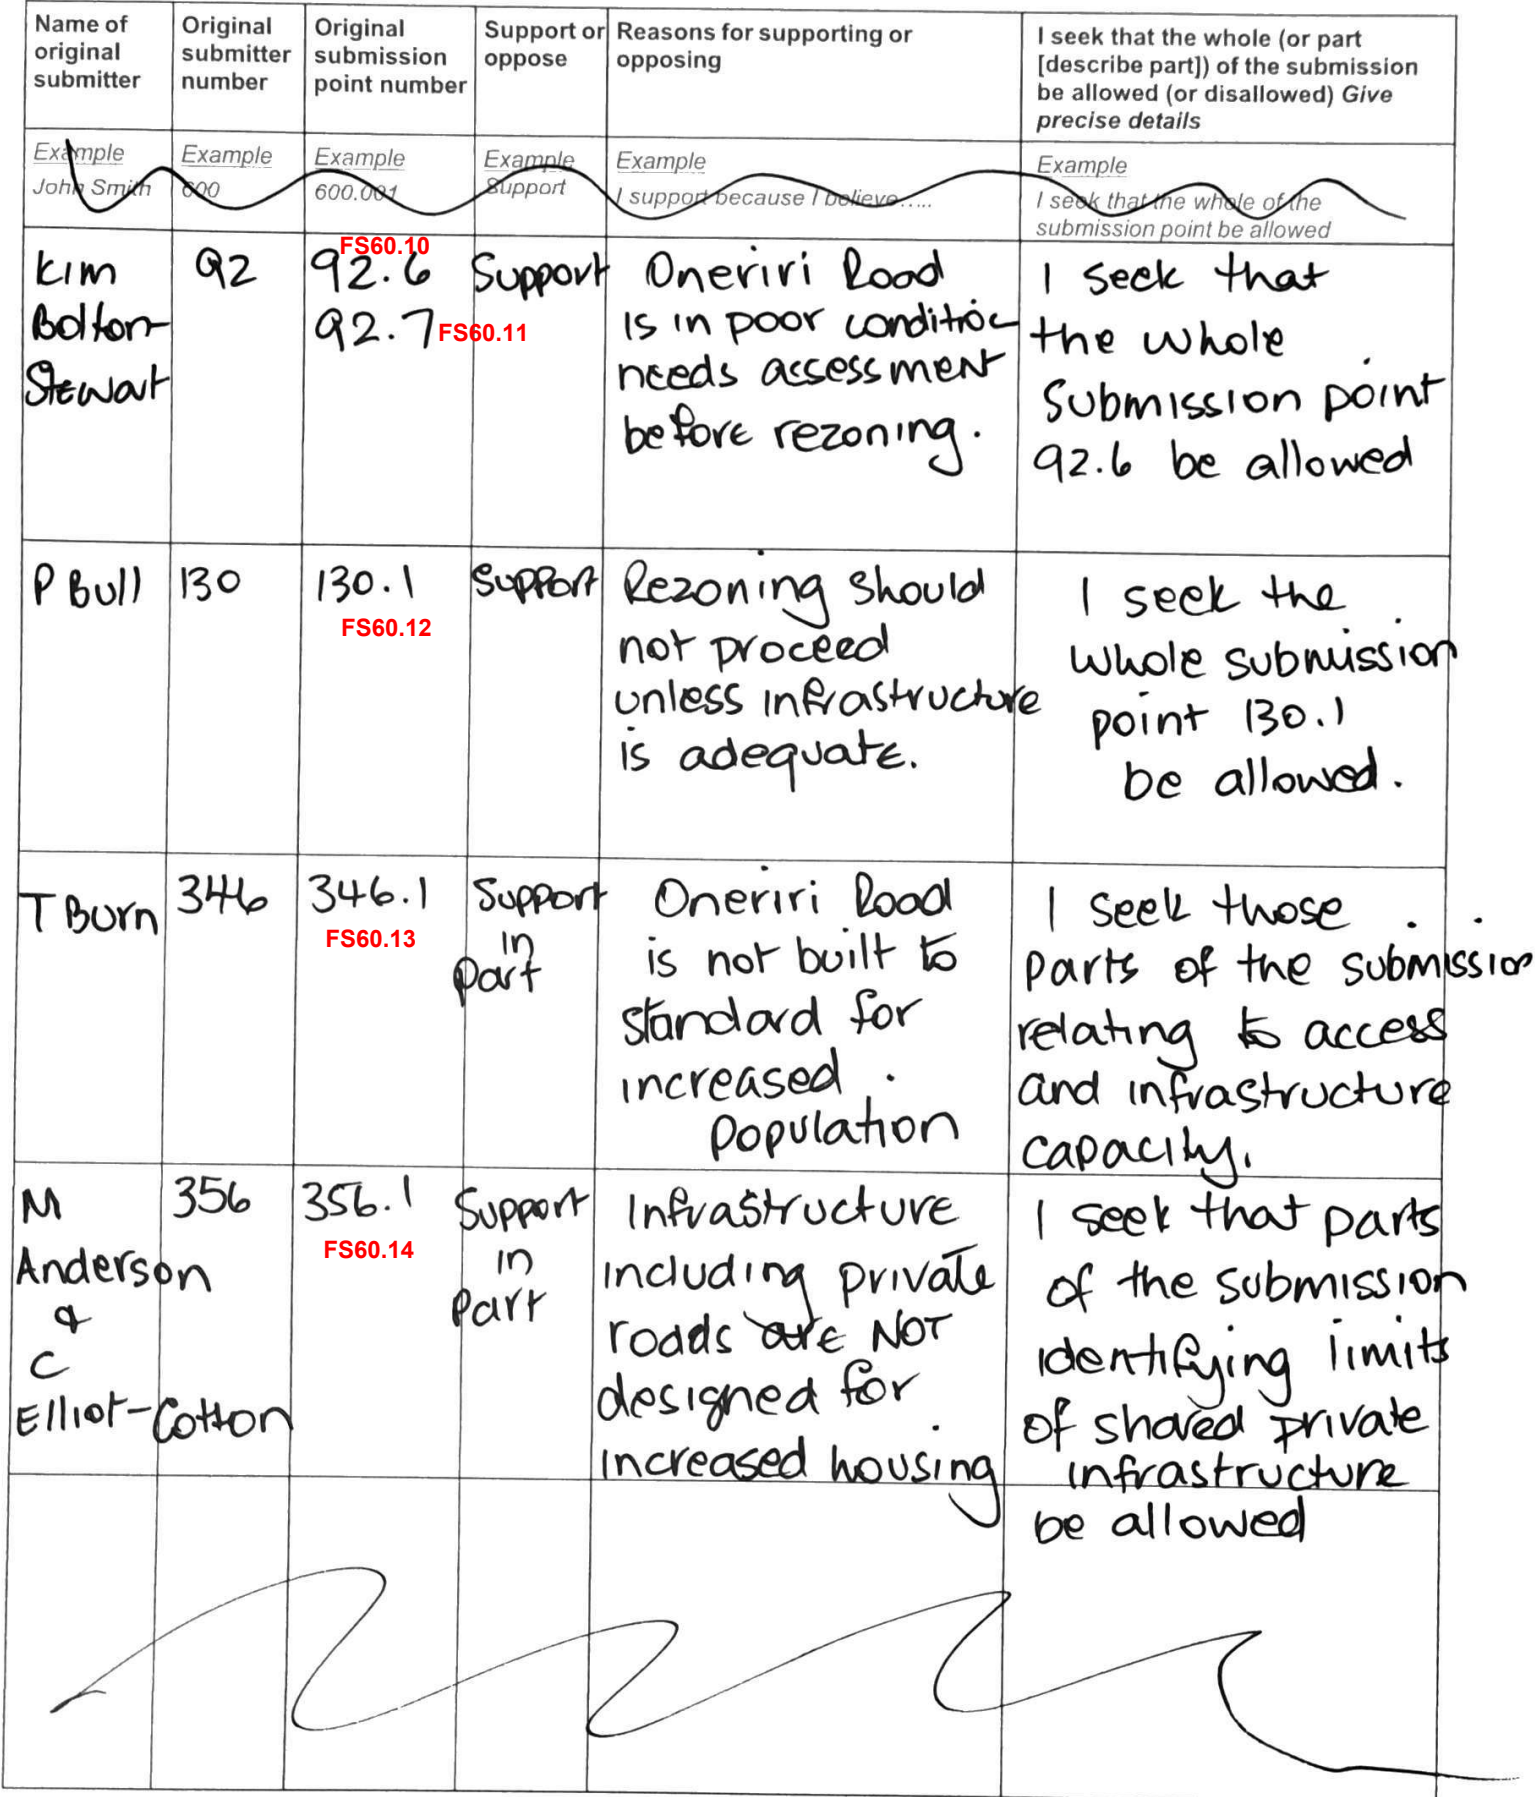 Name of original submitter
Original submitter number
Original submission point number
Support or oppose
Reasons for supporting or opposing
I seek that the whole (or part [describe part]) of the submission be allowed (or disallowed) Give precise details
Example
John Smith
Example
600
Example
600.001
Example
Support
Example
I support because I believe.....
Example
I seek that the whole of the
submission point be allowed
Kim
Bolton-
Stewart
92
FS60.10
92.6
92.7 FS60.11
Support
Oneriri Road
is in poor condition
needs assessment
before rezoning.
I seek that
the whole
submission point
92.6 be allowed
P Bull
130
130.1
FS60.12
Support
Rezoning should
not proceed
unless infrastructure
is adequate.
I seek the
whole submission
point 130.1
be allowed.
T Burn
346
346.1
FS60.13
Support
in
part
Oneriri Road
is not built to
standard for
increased
population
I seek those
parts of the submission
relating to access
and infrastructure
capacity.
M
Anderson
&
C
Elliot-Cotton
356
356.1
FS60.14
Support
in
part
Infrastructure
including private
roads are NOT
designed for
increased housing
I seek that parts
of the submission
identifying limits
of shared private
infrastructure
be allowed